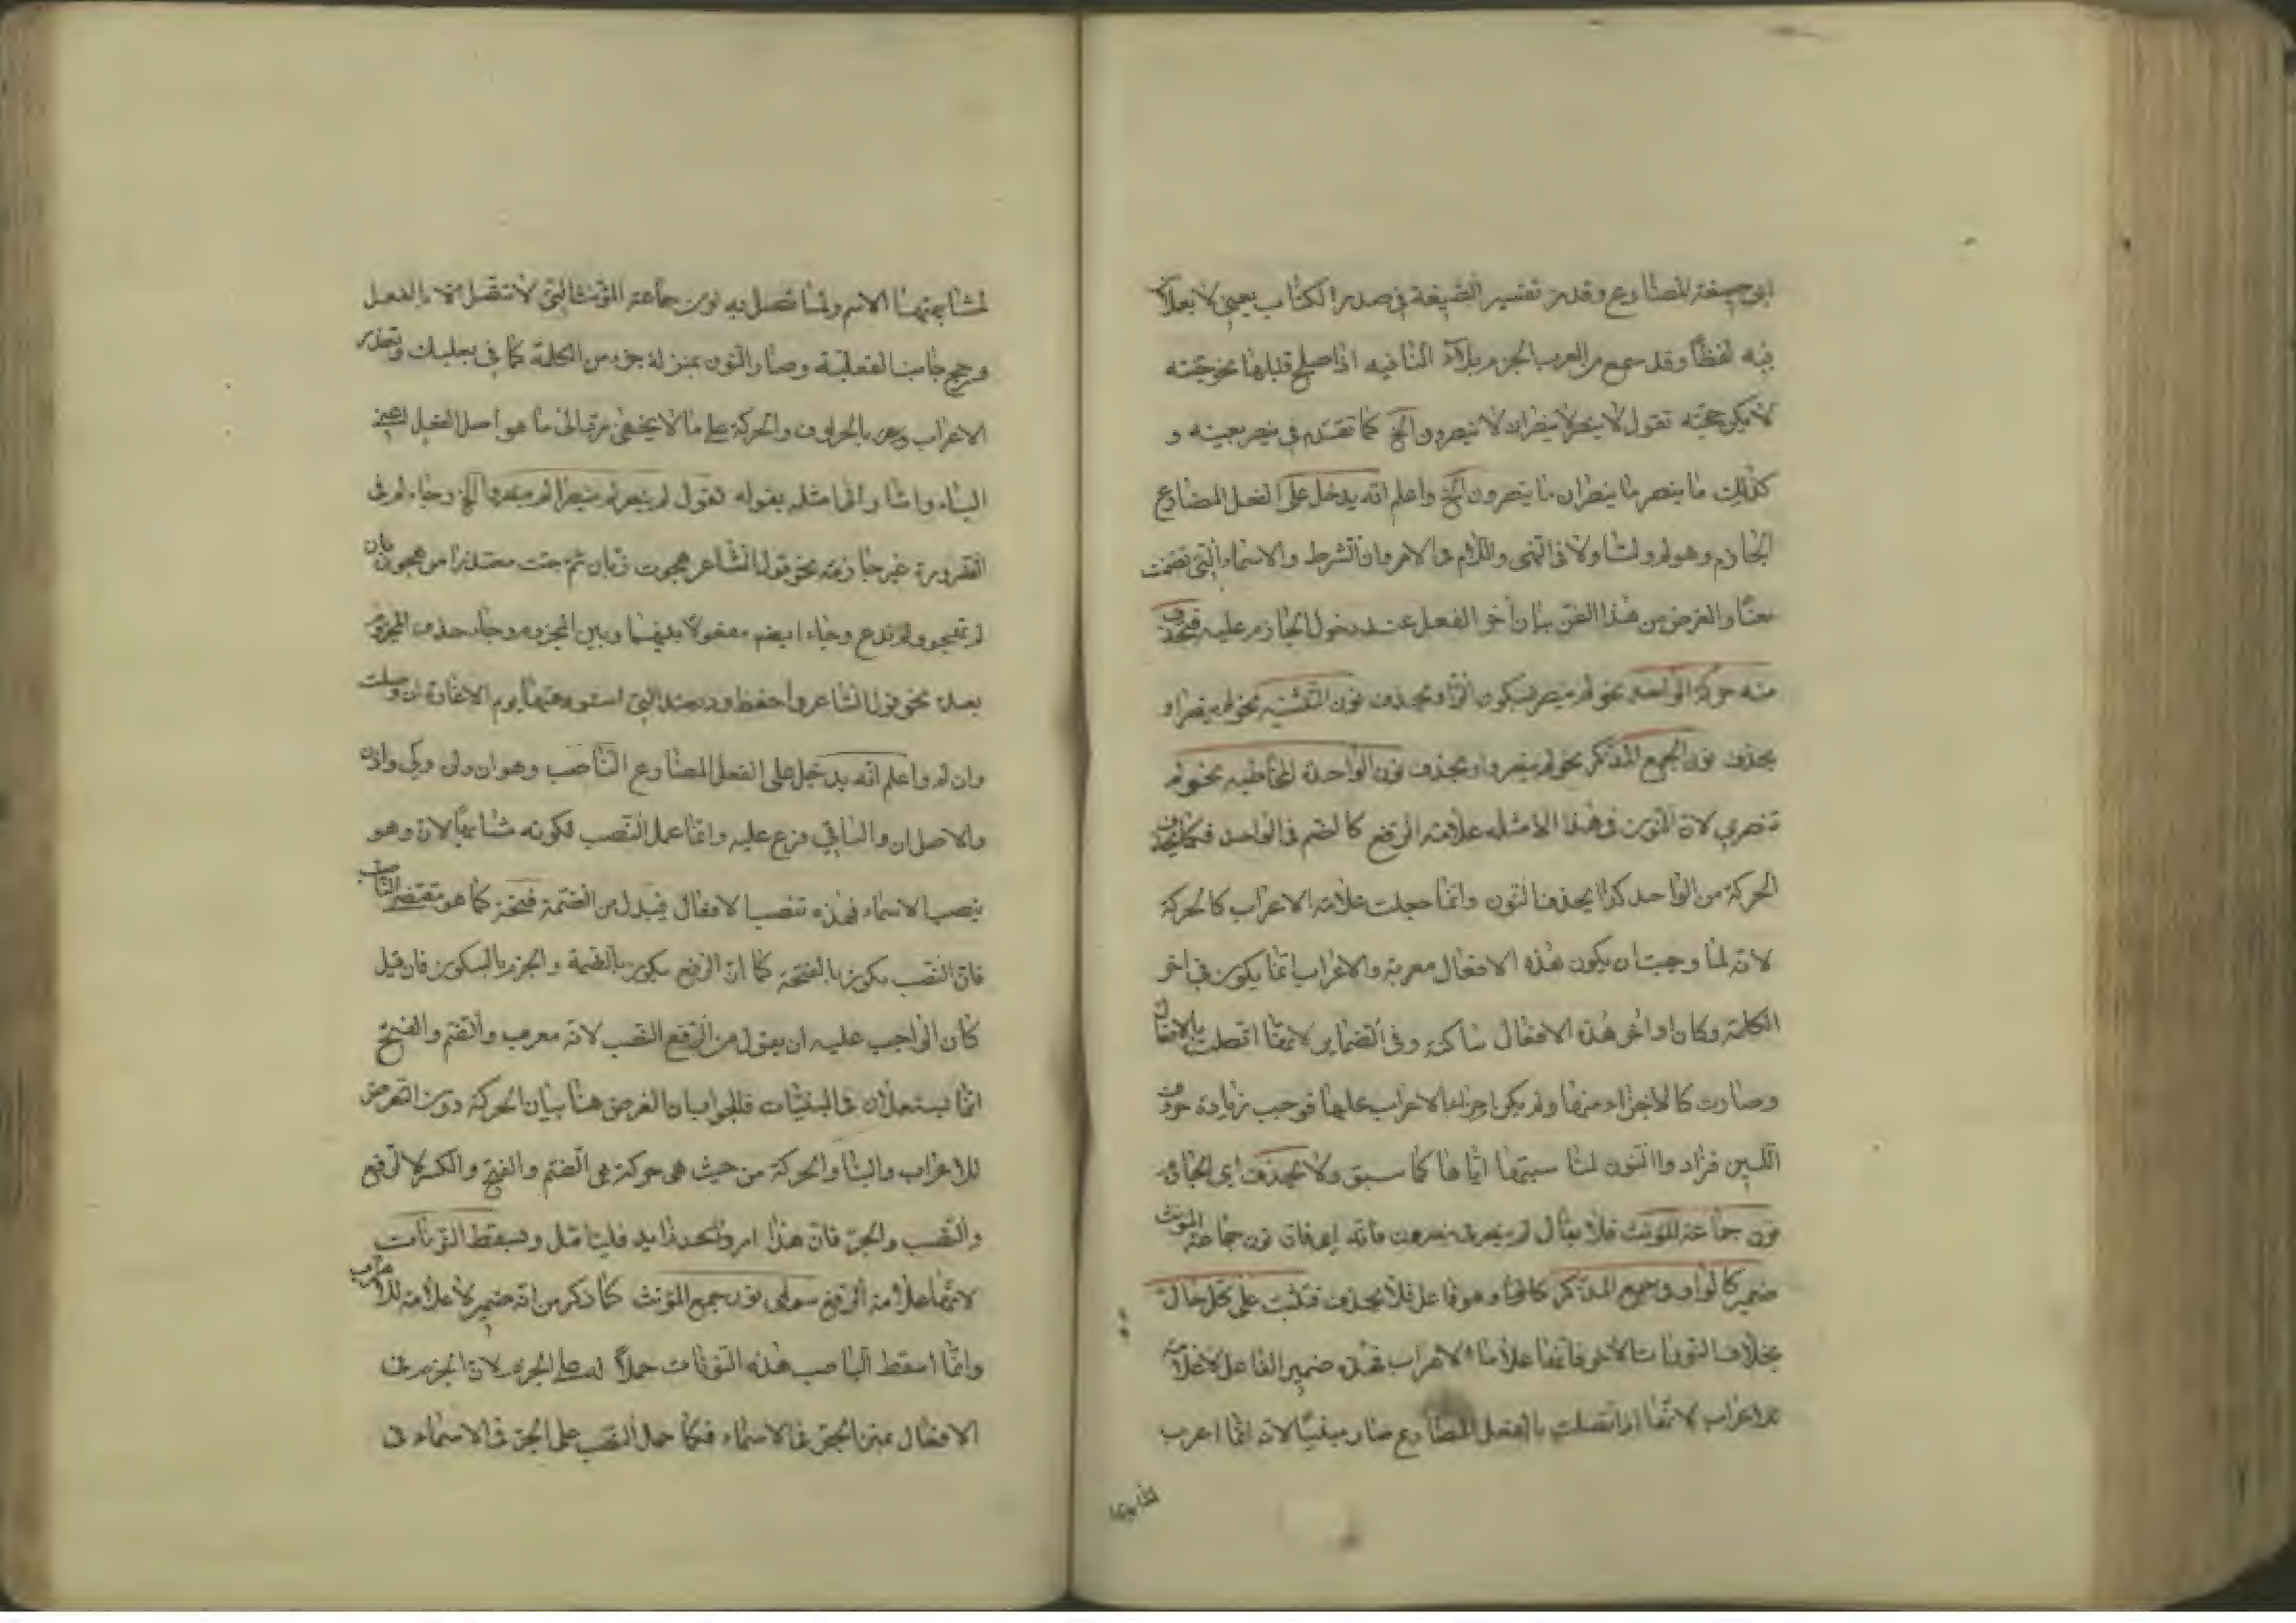 اى صيغة المضارع وقد مر تفسير الصيغة فى صدر الكتاب يعنى لا يعملان
فيه لفظا وقد سمع من العرب الجزم بلا النافيه اذا صلح قبلها نحو جئته
لا يكن حجته تقول لا ينصر لا ينصران لا ينصرون الخ كما تقدم فى ينصر بعينه و
كذلك ما ينصر ما ينصران ما ينصرون الخ واعلم انه يدخل على الفعل المضارع
الجازم وهو لم ولما ولا فى النهى واللام فى الامر وان الشرط والاسماء التى تضمنت
معنا والغرض من هذا الفن بيان آخر الفعل عند دخول الجازم عليه فيحذف
منه حركة الواحد نحو لم ينصر بسكون الراء ويحذف نون التثنيه نحو لم ينصرا و
يحذف نون الجمع المذكر نحو لم ينصروا ويحذف نون الواحدة المخاطبه نحو لم
تنصرى لان النون فى هذا الامثله علامة الرفع كالضم فى الواحد فكما يحذف
الحركة من الواحد كذا يحذف النون وانما جعلت علامة الاعراب كالحركة
لانه لما وجب ان يكون هذه الافعال معربة والاعراب انما يكون فى اخر
الكلمة وكان اواخر هذة الافعال ساكنة وفى الضماير لانها اتصلت بالافعال
وصارت كالاجزاء منها ولم يكن اجراء الاعراب عليها فوجب زيادة حرف
اللين فزادوا النون لمناسبتها اياها كما سبق ولا يحذف اى الجازم
نون جماعة المونث فلا يقال لم ينصر فى ينصرن فانه اى فان نون جماعة المونث
ضمير كالواو فى جمع المذكر وهو فاعل فلا يحذف فتثبت على كل حال
بخلاف النونات الاخر فانها علامات الاعراب فهذه ضمير الفاعل لا علامة
للاعراب لانها اذا اتصلت بالفعل المضارع صار مبنيا لانه انما اعرب
لمشابهتها الاسم ولما اتصل به نون جماعة المؤنث التى لا تتصل الا بالفعل
ورجح جانب الفعلية وصار النون بمنزلة جزء من الكلمة كما فى بعلبك وتعذر
الاعراب بالحروف والحركة على ما لا يخفى رد الى ما هو اصل الفعل اعنى
البناء واشار الى امثله بقوله تقول لم ينصر لم ينصرا لم ينصروا الخ وجاء لم فى
الضرورة غير جازمه نحو قول الشاعر هجوت زبان ثم جئت معتذرا من هجو زبان
لم تهجو ولم تدع وجاء ايضا مفصولا بينها وبين المجزوم وجاء حذف المجزوم
بعدة نحو قول الشاعر واحفظ وديعتك التى استودعتها يوم الاعازة ان وصلت
وان لم واعلم انه يدخل على الفعل المضارع الناصب وهو ان ولن وكى واذن
والاصل ان والباقى فرع عليه وانما عمل النصب لكونه مشابها لان وهو
ينصب الاسماء فهذه تنصب الافعال فيبدل من الضمة فتحة كما هو مقتضى الناصب
فان النصب يكون بالفتحة كما ان الرفع يكون بالضمة والجزم بالسكون فان قيل
كان الواجب عليه ان يقول من الرفع النصب لانه معرب والضم والفتح
انما يستعملان فى المبنيات فالجواب ان الغرض هنا بيان الحركة دون التعرض
للاعراب والبناء والحركة من حيث هى حركة هى الضم والفتح والكسر لا الرفع
والنصب والجر فان هذا امر زايد فليتامل ويسقط النونات
لانها علامة الرفع سوى نون جمع المؤنث كما ذكر من انه ضمير لا علامة للاعراب
وانما اسقط الناصب هذه النونات حملا له على الجزم لان الجزم فى
الافعال بمنزلة الجر فى الاسماء فكما حمل النصب على الجر فى الاسماء فى